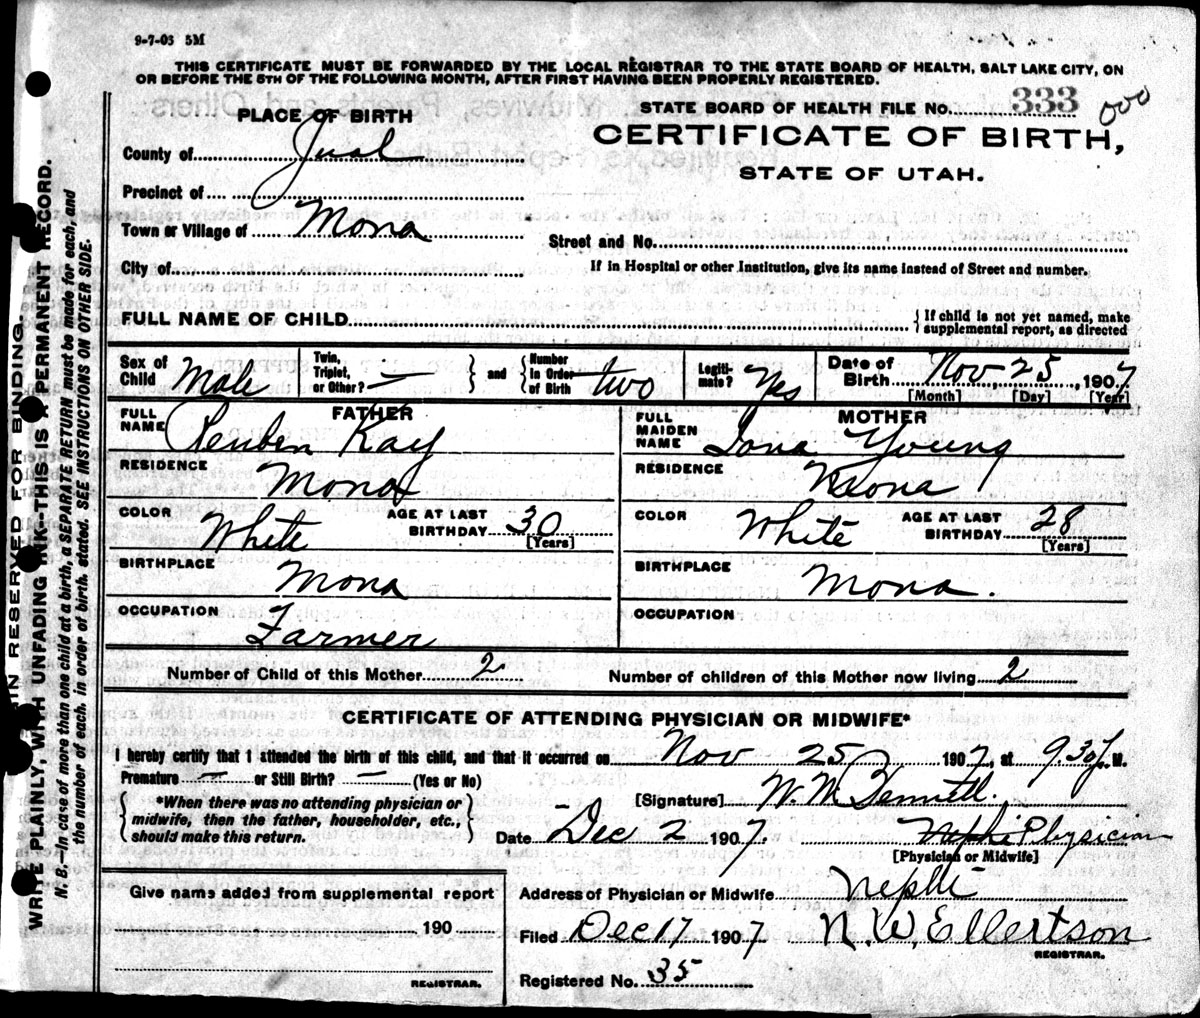 9-7-05 5M
THIS CERTIFICATE MUST BE FORWARDED BY THE LOCAL REGISTRAR TO THE STATE BOARD OF HEALTH, SALT LAKE CITY, ON
OR BEFORE THE 5TH OF THE FOLLOWING MONTH, AFTER FIRST HAVING BEEN PROPERLY REGISTERED.
STATE BOARD OF HEALTH FILE No. 333 000
PLACE OF BIRTH
CERTIFICATE OF BIRTH,
STATE OF UTAH.
County of Juab
Precinct of
Town or Village of Mona
Street and No.
City of
If in Hospital or other Institution, give its name instead of Street and number.
FULL NAME OF CHILD
{ If child is not yet named, make
supplemental report, as directed
Sex of Child Male
Twin, Triplet, or Other? —
and
Number In Order of Birth two
Legitimate? Yes
Date of Birth Nov 25, 1907
[Month] [Day] [Year]
FATHER
FULL NAME Reuben Kay
MOTHER
FULL MAIDEN NAME Iona Young
RESIDENCE Mona
RESIDENCE Mona
COLOR White AGE AT LAST BIRTHDAY 30 [Years]
COLOR White AGE AT LAST BIRTHDAY 28 [Years]
BIRTHPLACE Mona
BIRTHPLACE Mona.
OCCUPATION Farmer
OCCUPATION
Number of Child of this Mother 2
Number of children of this Mother now living 2
CERTIFICATE OF ATTENDING PHYSICIAN OR MIDWIFE*
I hereby certify that I attended the birth of this child, and that it occurred on Nov 25 1907, at 9.30 P. M.
Premature — or Still Birth? — (Yes or No)
{ *When there was no attending physician or
midwife, then the father, householder, etc.,
should make this return. }
[Signature] W. M. Bennett.
Date Dec 2 1907. Nephi Physician
[Physician or Midwife]
Give name added from supplemental report
190
REGISTRAR.
Address of Physician or Midwife Nephi
Filed Dec 17 1907 N. W. Ellertson
REGISTRAR.
Registered No. 35
IN RESERVED FOR BINDING.
WRITE PLAINLY, WITH UNFADING INK—THIS IS A PERMANENT RECORD.
N. B.—In case of more than one child at a birth, a SEPARATE RETURN must be made for each, and
the number of each, in order of birth, stated. SEE INSTRUCTIONS ON OTHER SIDE.